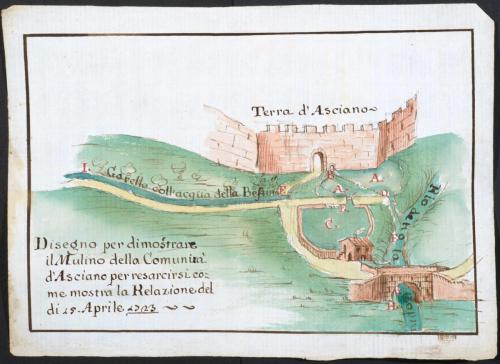 Terra d'Asciano
I.
Gorello coll'acqua della
E
B
A.
A.
F
C.
Rio detto la
H.
Disegno per dimostrare
il Mulino della Comunità
d'Asciano per resarcirsi co-
me mostra la Relazione del
di Aprile